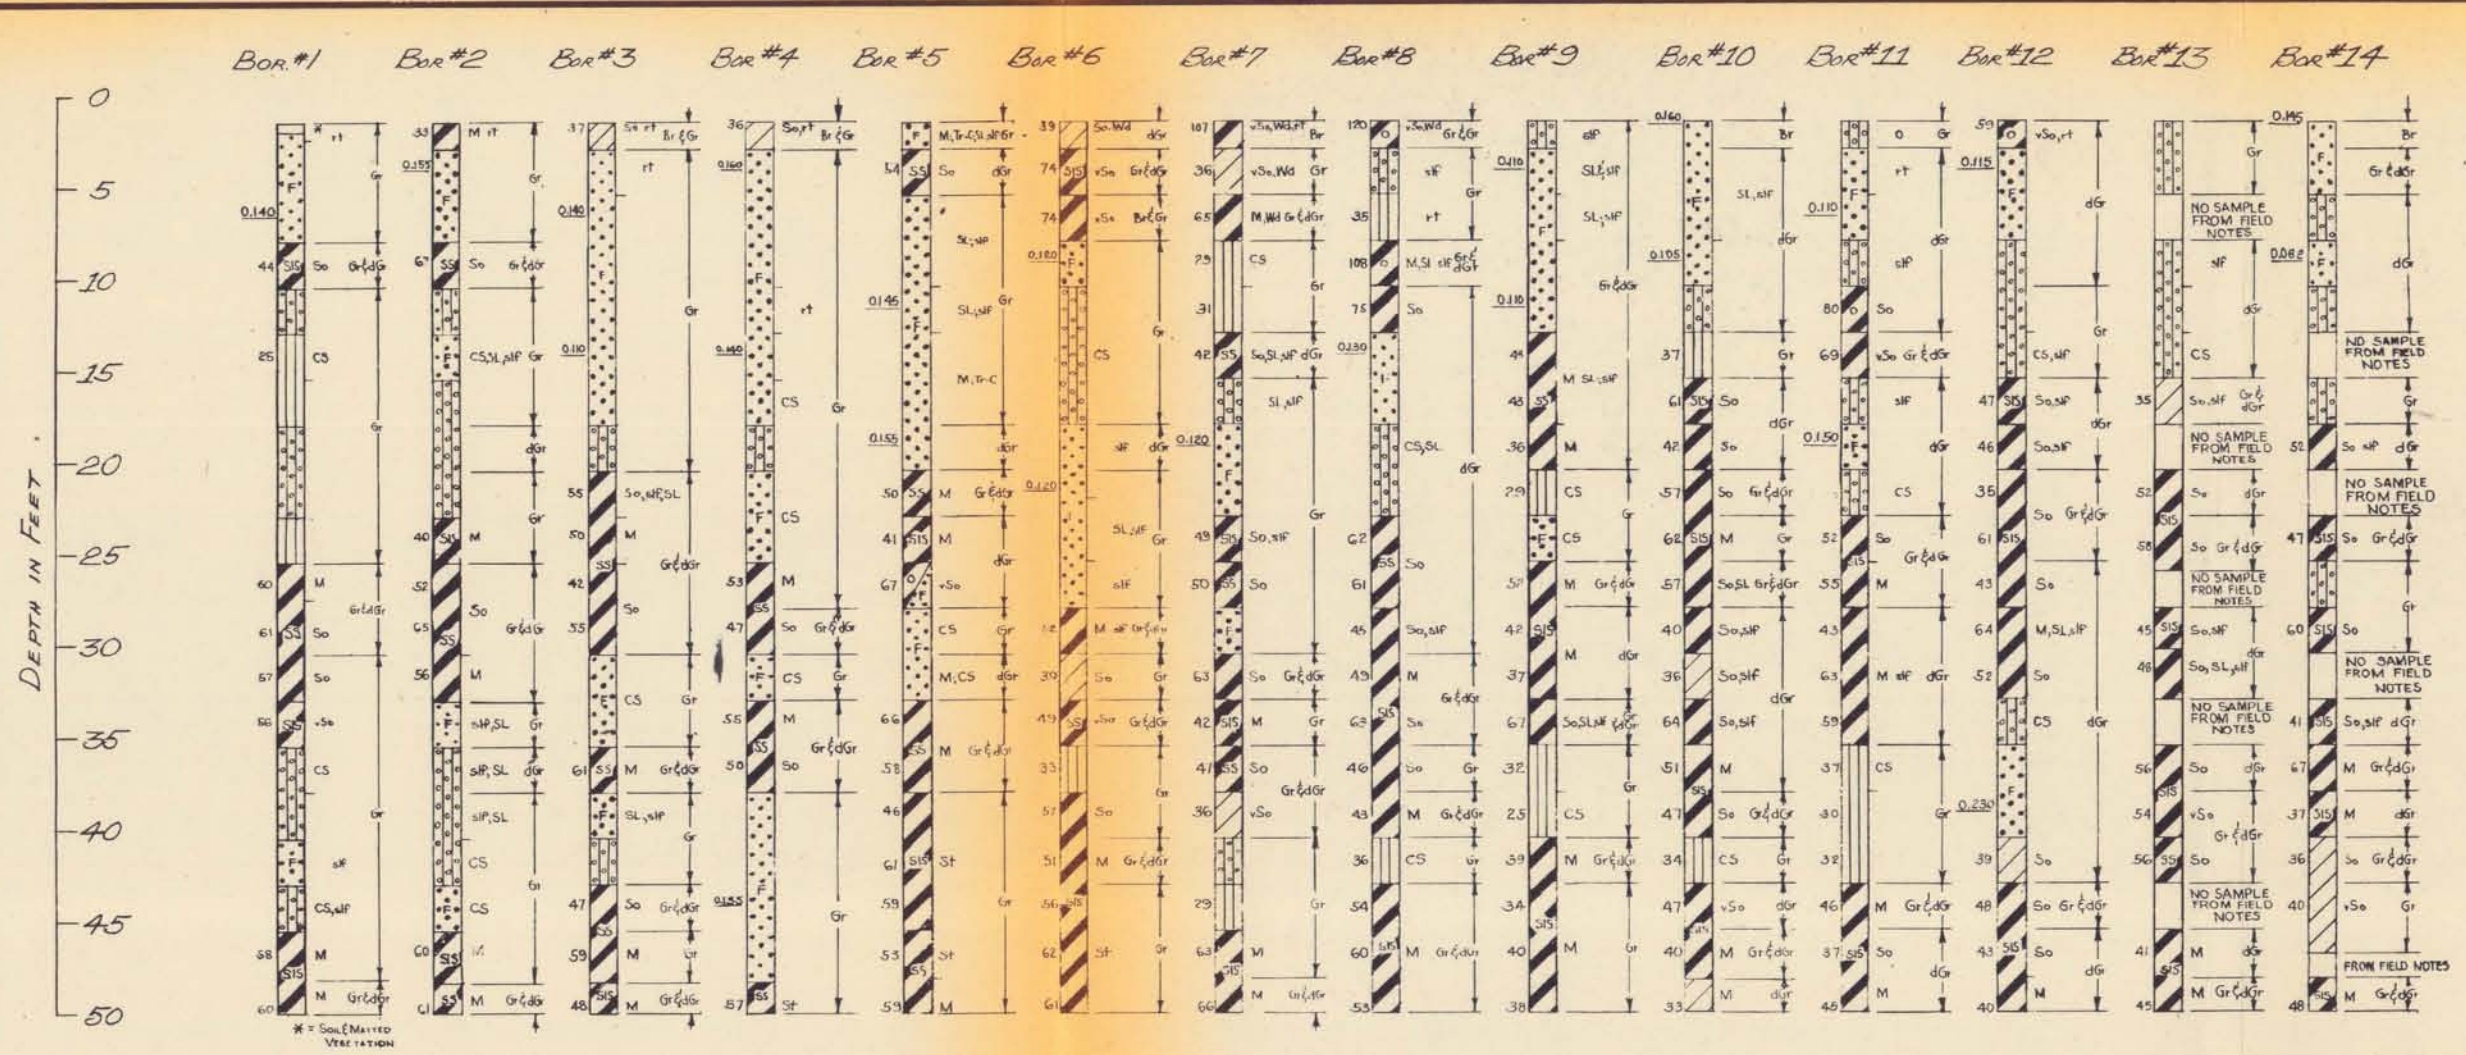 BOR.#1 BOR#2 BOR#3 BOR#4 BOR#5 BOR#6 BOR#7 BOR#8 BOR#9 BOR#10 BOR#11 BOR#12 BOR#13 BOR#14
DEPTH IN FEET
0
5
10
15
20
25
30
35
40
45
50
* rt
Gr
F
0.140
44 SIS So Gr&dG
25 CS
Gr
60 M
Gr&dGr
61 SS So
57 So
56 SIS vSo
CS
Gr
F slf
CS,slf
58 M
SIS
M Gr&dGr
60
* = SOIL & MATTED
VEGETATION
33 M rt
0.155
Gr
F
67 SS So Gr&dGr
Gr
F CS,SL,slf Gr
dGr
Gr
40 SIS M
52
So
65 SS Gr&dG
56 M
F slf,SL Gr
slf,SL dGr
slf,SL
CS
Gr
F CS
60 SIS M
61 SS M Gr&dG
37 So rt
Br&Gr
rt
0.140
F
Gr
0.110
55 So,slf,SL
50 M
SS Gr&dGr
42
So
55
F CS Gr
61 SS M Gr&dGr
F SL,slf
Gr
47 So Gr&dGr
SS
59 M Gr
SIS Gr&dGr
48 M
36 So,rt
Br&Gr
0.160
F
rt
0.140
CS
Gr
F CS
53 M
SS
47 So Gr&dGr
F CS Gr
55 M
SS Gr&dGr
50 So
F
0.155
Gr
SS
57 St
F M,Tr-C,SL,slf Gr
54 SS So dGr
SL,slf
Gr
0.145 SL,slf
F
M,Tr-C
0.155
dGr
50 SS M Gr&dGr
41 SIS M
dGr
67 O F vSo
CS Gr
F
M,CS dGr
66
SS M Gr&dGr
58
46
61 SIS St
59 Gr
53 St
SS
59 M
39 So,Wd
dGr
74 SIS vSo Gr&dGr
74 vSo Br&Gr
0.180 F
Gr
CS
slf dGr
0.120
SL,slf
Gr
slf
M slf
39 So Gr
49 SS vSo Gr&dGr
33
Gr
57 So
51 M Gr&dGr
56 SIS
Gr
62 St
61
107 vSo,Wd,rt
Br
36 vSo,Wd Gr
65 M,Wd Gr&dGr
29 CS
Gr
31
42 SS So,SL,slf dGr
SL,slf
0.120
F
Gr
49 SIS So,slf
50 SS So
F
63 So Gr&dGr
42 SIS M Gr
47 SS So
Gr&dGr
36 vSo
29 Gr
63 M
SIS
M Gr&dGr
66
120 O vSo,Wd
Gr&Gr
slf
Gr
35 rt
108 O M,SL slf Gr& dGr
75 So
0.130
CS,SL
dGr
62
SS So
61
45 So,slf
49 M
Gr&dGr
63 SIS So
46 So Gr
43 M Gr&dGr
36 CS Gr
54
60 SIS M Gr&dGr
53
slf
0.110 SL,slf
SL,slf
F
Gr&dGr
0.110
M SL,slf
SS
36 M
29 CS
Gr
F CS
52 M Gr&dGr
42 SIS
M dGr
37
67 So,SL,slf Gr &dGr
32
Gr
25 CS
39 M Gr&dGr
34
SIS
40 M Gr
38
0.160
Br
F SL,slf
dGr
0.105
37 Gr
61 SIS So
dGr
42 So
57 So Gr&dGr
62 SIS M Gr
57 So,SL Gr&dGr
40 So,slf
36 So,slf
dGr
64 So,slf
51 M
SIS
47 So Gr&dGr
34 CS Gr
47 vSo dGr
SIS
40 M Gr&dGr
33 M dGr
O Gr
rt
0.110 F
dGr
slf
80 O So
69 vSo Gr&dGr
slf
0.150 F dGr
CS
52 So
SIS Gr&dGr
55 M
43
63 M slf dGr
59
37 CS
30 Gr
32
46 M Gr&dGr
37 SIS So
dGr
45 M
59 O vSo,rt
0.115
F dGr
Gr
CS,slf
47 SIS So,slf
dGr
46 So,slf
35
So Gr&dGr
61 SIS
43 So
64 M,SL,slf
52 So
CS dGr
0.230 F
39 So
48 So Gr&dGr
43 SIS So
dGr
40 M
Gr
NO SAMPLE
FROM FIELD
NOTES
slf
dGr
CS
35 So,slf Gr& dGr
NO SAMPLE
FROM FIELD
NOTES
52 So dGr
SIS
58 So Gr&dGr
NO SAMPLE
FROM FIELD
NOTES
45 SIS So,slf
dGr
48 So,SL,slf
NO SAMPLE
FROM FIELD
NOTES
56 So dGr
SIS
54 vSo
Gr&dGr
56 SS So
NO SAMPLE
FROM FIELD
NOTES
41 M dGr
SIS
M Gr&dGr
45
0.145
Br
F
Gr&dGr
0.062 F dGr
NO SAMPLE
FROM FIELD
NOTES
Gr
52 So slf dGr
NO SAMPLE
FROM FIELD
NOTES
47 SIS So Gr&dGr
Gr
60 SIS So
NO SAMPLE
FROM FIELD
NOTES
41 SIS So,slf dGr
67 M Gr&dGr
37 SIS M dGr
36 So Gr&dGr
40 vSo Gr
FROM FIELD NOTES
SIS M Gr&dGr
48